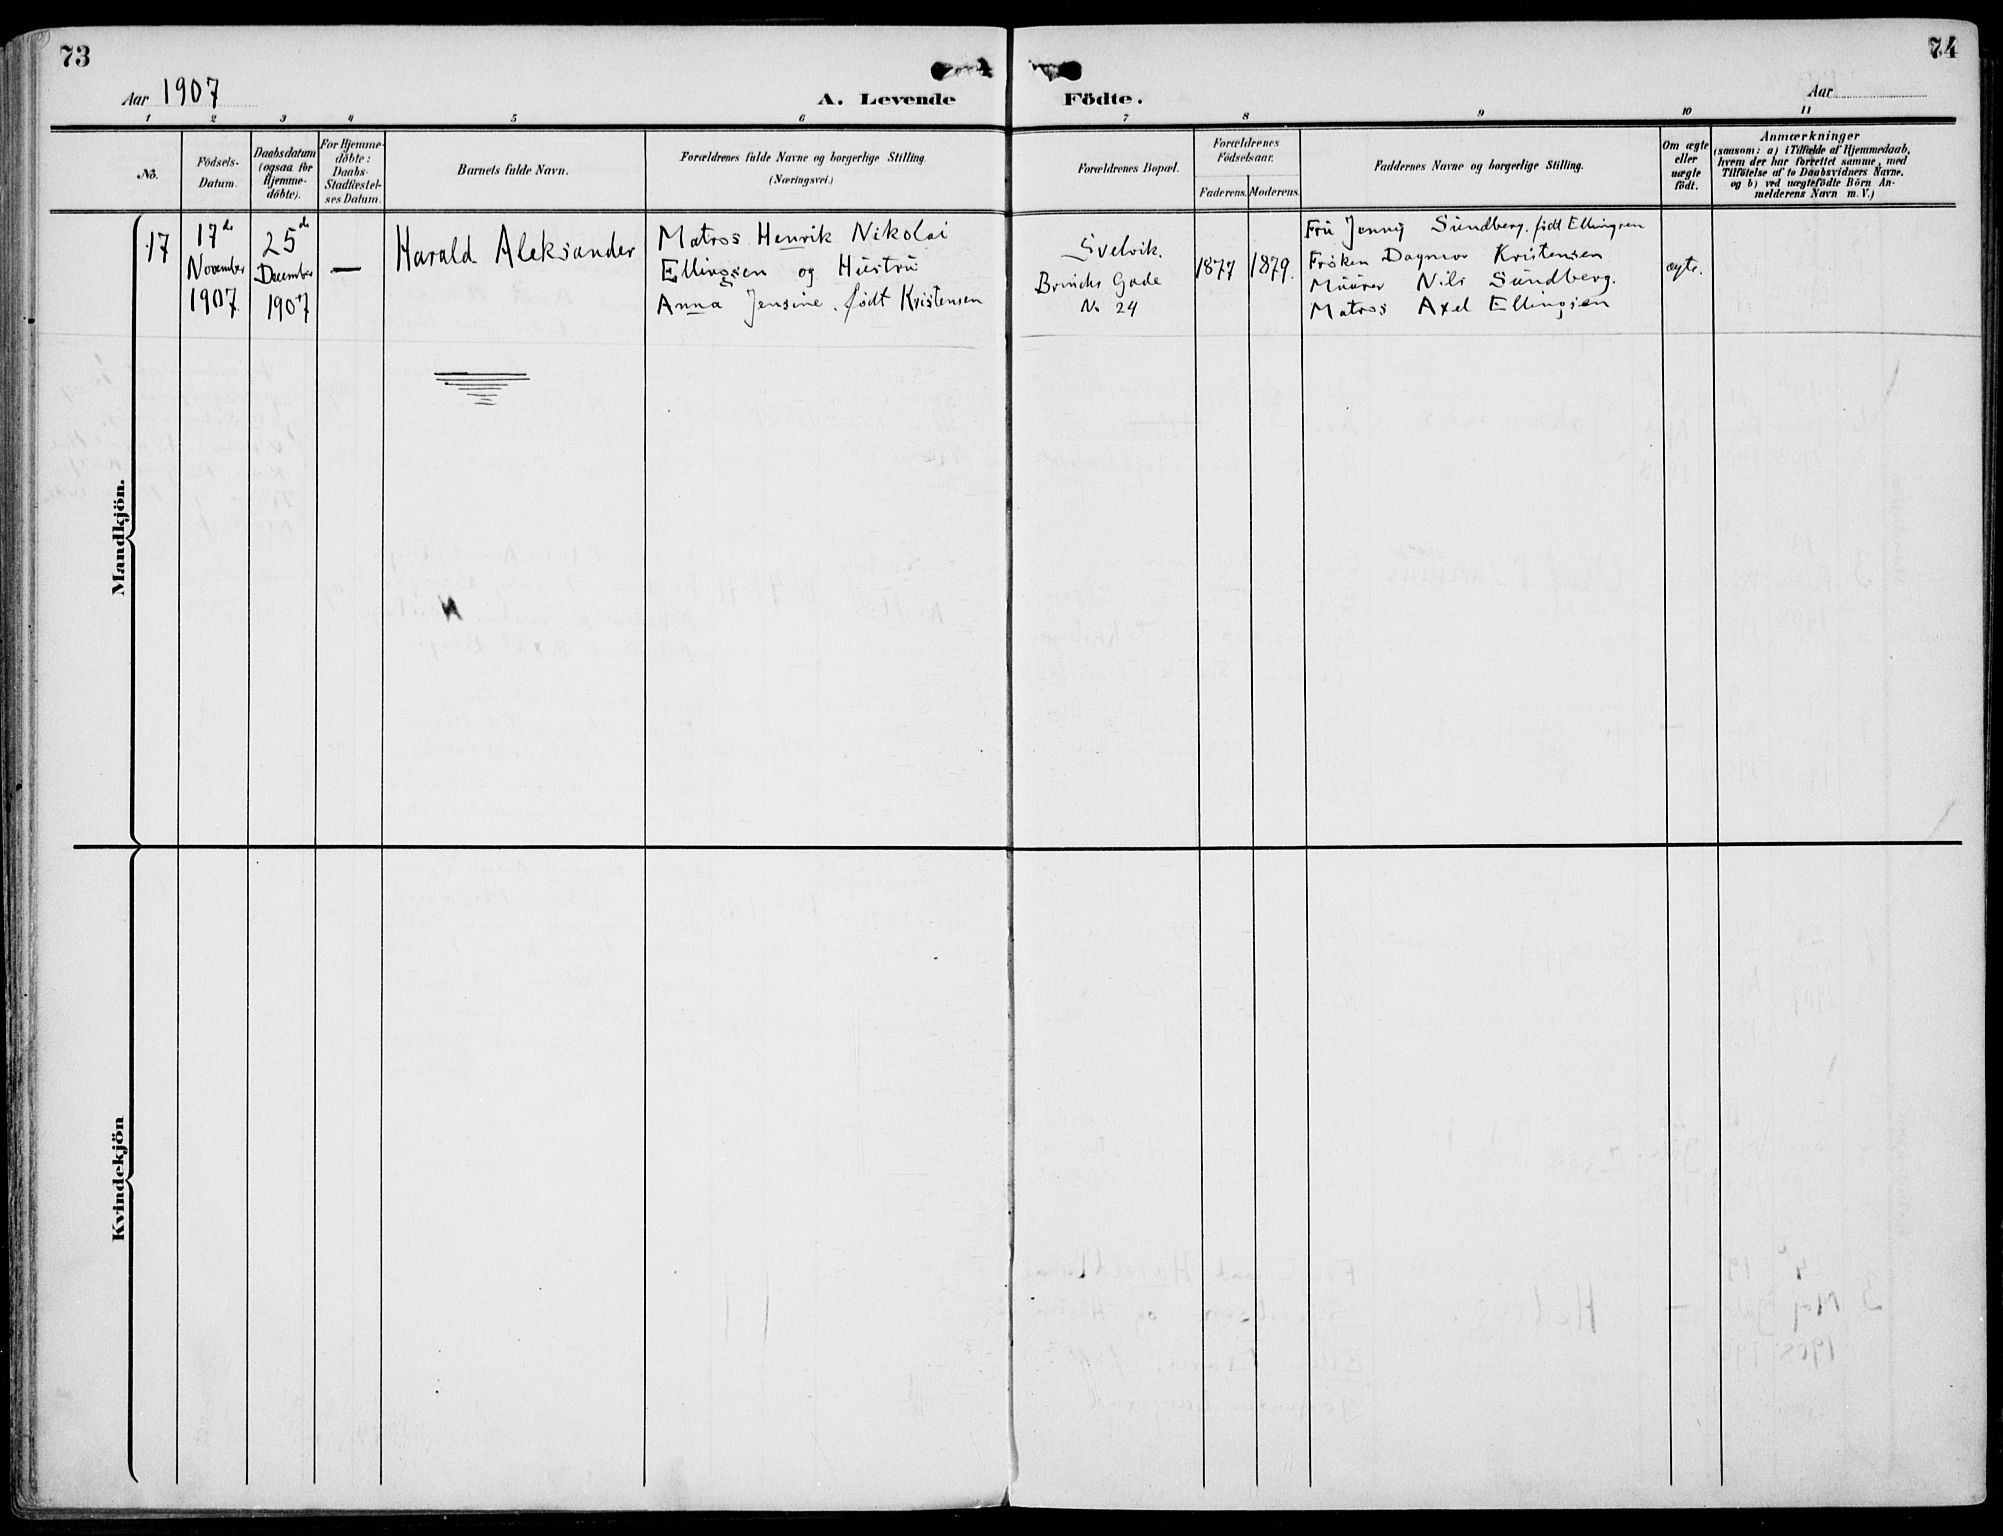 73
74
Aar 1907
A. Levende
Födte.
Aar
1
2
3
4
5
6
7
8
9
10
11
No.
Födsels-
Datum.
Daabsdatum
(ogsaa for
Hjemme-
döbte).
For Hjemme-
döbte:
Daabs-
Stadfæstel-
ses Datum.
Barnets fulde Navn.
Forældrenes fulde Navne og borgerlige Stilling.
(Næringsvei.)
Forældrenes Bopæl.
Forældrenes
Födselsaar.
Faderens.
Moderens.
Faddernes Navne og borgerlige Stilling.
Om ægte
eller
uægte
födt.
Anmærkninger
(saasom: a) i Tilfælde af Hjemmedaab,
hvem der har forrettet samme, med
Tilföielse af to Daabsvidners Navne.
og b) ved uægtefödte Börn An-
melderens Navn m. V.)
Mandkjön.
17
17de
November
1907.
25de
December
1907
—
Harald Aleksander
Matros Henrik Nikolai
Ellingsen og Hustru
Anna Jensine. født Kristensen
Svelvik.
Gade
No 24
1877
1879.
Fru Jenny Sundberg. født Ellingsen
Frøken Dagmar Kristensen
Murer Nils Sundberg.
Matros Axel Ellingsen
ægte.
Kvindekjön